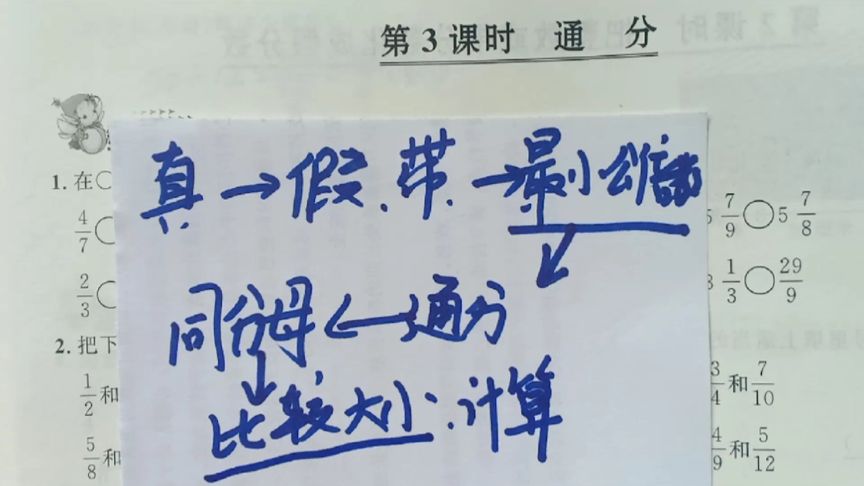 第3课时 通 分
真→假、带、→最小公倍数
1. 在○
4/7 ○
5 7/9 ○ 5 7/8
2/3 ○
3 1/3 ○ 29/9
同分母←通分
2. 把下
1/2 和
3/4 和 7/10
比较大小、计算
5/8 和
4/9 和 5/12